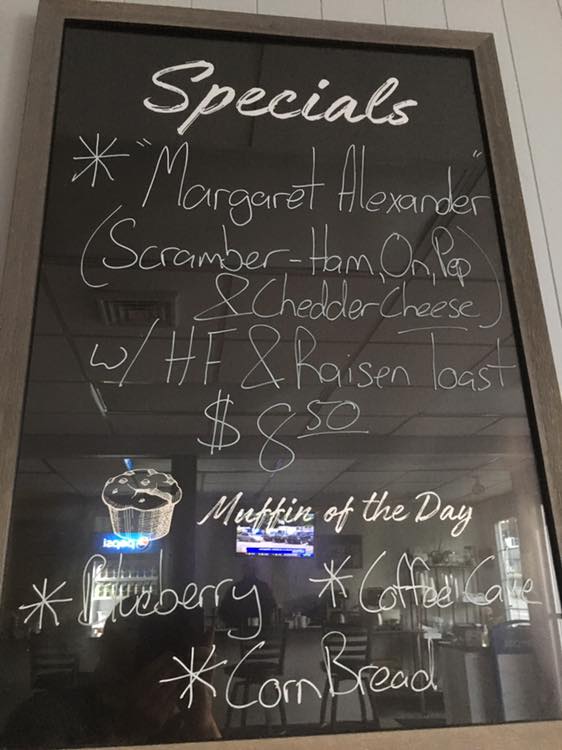 Specials
* "Margaret Alexander"
(Scramber-Ham, On, Pep
& Chedder Cheese)
w/ HF & Raisen Toast
$8 50
Muffin of the Day
* Blueberry * Coffee Cake
* Corn Bread
pepsi